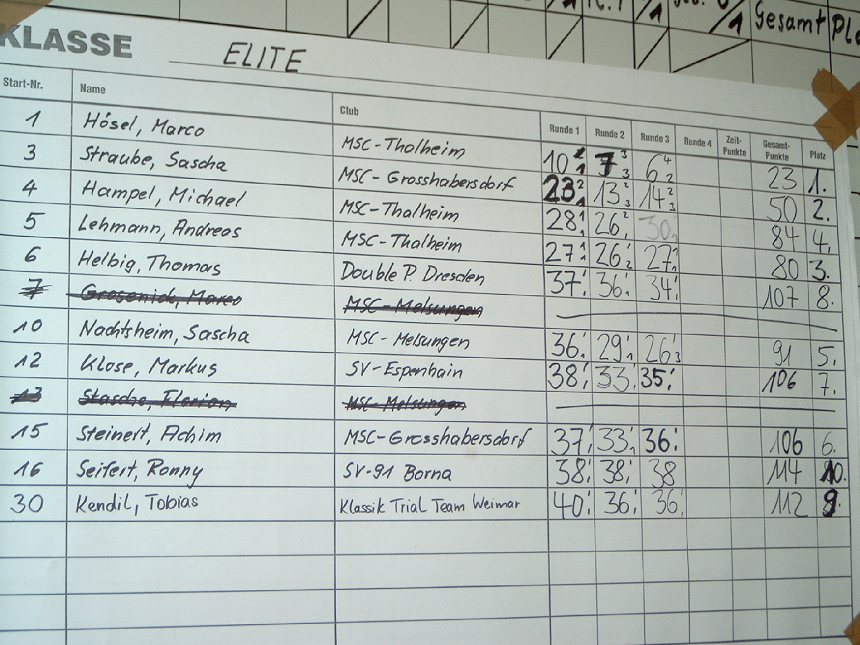 Gesamt Pla
KLASSE ELITE
Start-Nr. Name Club Runde 1 Runde 2 Runde 3 Runde 4 Zeit-Punkte Gesamt-Punkte Platz
1 Hösel, Marco MSC-Thalheim 10 7 6 23 1.
3 Straube, Sascha MSC-Grosshabersdorf 23 13 14 50 2.
4 Hampel, Michael MSC-Thalheim 28 26 30 84 4.
5 Lehmann, Andreas MSC-Thalheim 27 26 27 80 3.
6 Helbig, Thomas Double P. Dresden 37 36 34 107 8.
7 Grosenick, Marco MSC-Melsungen
10 Nachtsheim, Sascha MSC-Melsungen 36 29 26 91 5.
12 Klose, Markus SV-Espenhain 38 33 35 106 7.
13 Stasche, Florian MSC-Melsungen
15 Steinert, Achim MSC-Grosshabersdorf 37 33 36 106 6.
16 Seifert, Ronny SV-91 Borna 38 38 38 114 10.
30 Kendil, Tobias Klassik Trial Team Weimar 40 36 36 112 9.